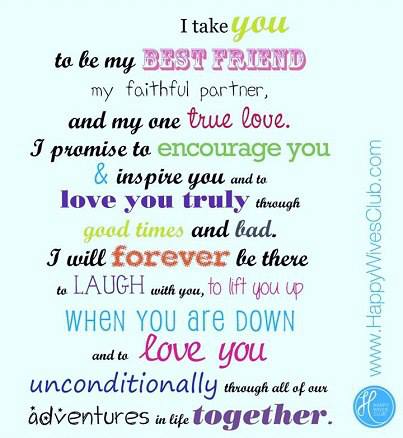 I take you
to be my BEST FRIEND
my faithful partner,
and my one true love.
I promise to encourage you
& inspire you and to
love you truly through
good times and bad.
I will forever be there
to LAUGH with you, to lift you up
WHEN YOU ARE DOWN
and to love you
unconditionally through all of our
adventures in life together.
www.HappyWivesClub.com
H
HAPPY
WIVES
CLUB